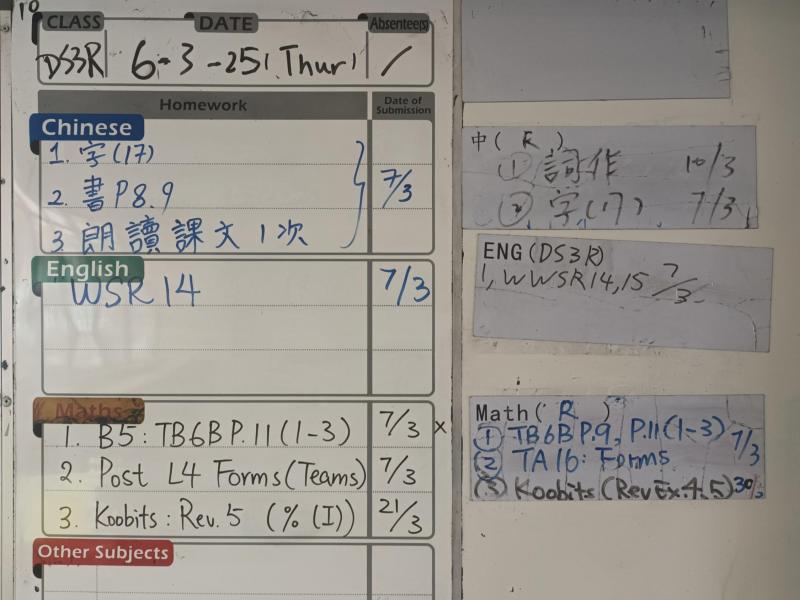 10
CLASS DATE Absentee(s)
DS3R 6-3-25(Thur) /
Homework Date of Submission
Chinese
1. 字(17)
2. 書P8.9 7/3
3. 朗讀課文1次
English
WSR 14 7/3
Maths
1. B5: TB6B P.11(1-3) 7/3 x
2. Post L4 Forms (Teams) 7/3
3. Koobits: Rev. 5 (% (I)) 21/3
Other Subjects
中( R )
① 詞作 10/3
② 字(17) 7/3
ENG(DS3R)
1, WWSR14,15 7/3
Math( R )
① TB6B P.9, P.11(1-3) 7/3
② TA16: Forms
③ Koobits (Rev Ex.4.5) 30/3